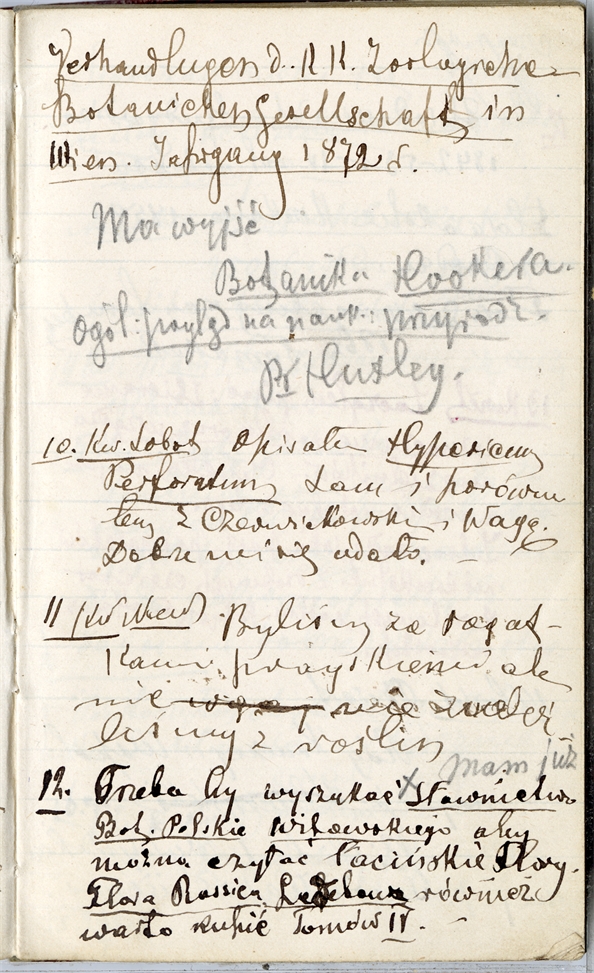 Verhandlugen d. K. K. Zoologische-
Botanichen Gesellschaft in
Wien. Jahrgang 1872 r.
Ma wyjść
Botanika Hookera.
Ogól: pogląd na nauk: przyrodz.
Pr Huxley.
10. Kw. Sobot Opisałem Hypericum
Perforatum sam i porówna
łem z Czerwiakowskim i Wagą.
Dobrze mi się udało. –
11 Kw. Byliśmy za rogat-
kami ale
nie nie znaleź
liśmy z roślin
mam już
12. Trzeba by wyszukać x Słownictwo
Bot. Polskie aby
można czytać łacińskie Flory.
Flora Rossica Ledeboura również
warto kupić Tomów II. –